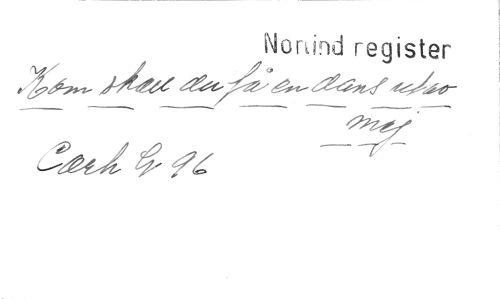 Norlind register
Kom skall du få en dans utav
mej
Carh G 96